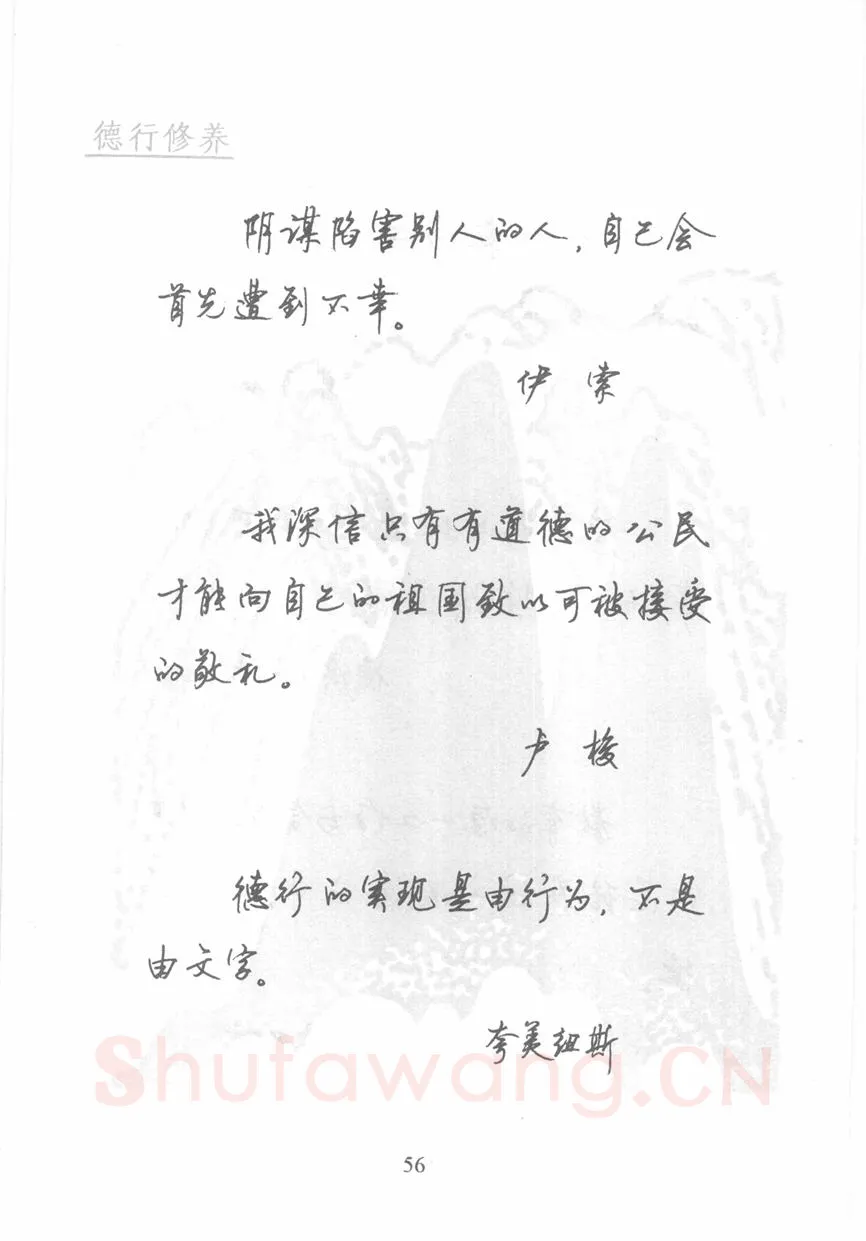 德行修养
阴谋陷害别人的人，自己会
首先遭到不幸。
伊 索
我深信只有有道德的公民
才能向自己的祖国致以可被接受
的敬礼。
卢 梭
德行的实现是由行为，不是
由文字。
夸美纽斯
Shufawang.CN
56